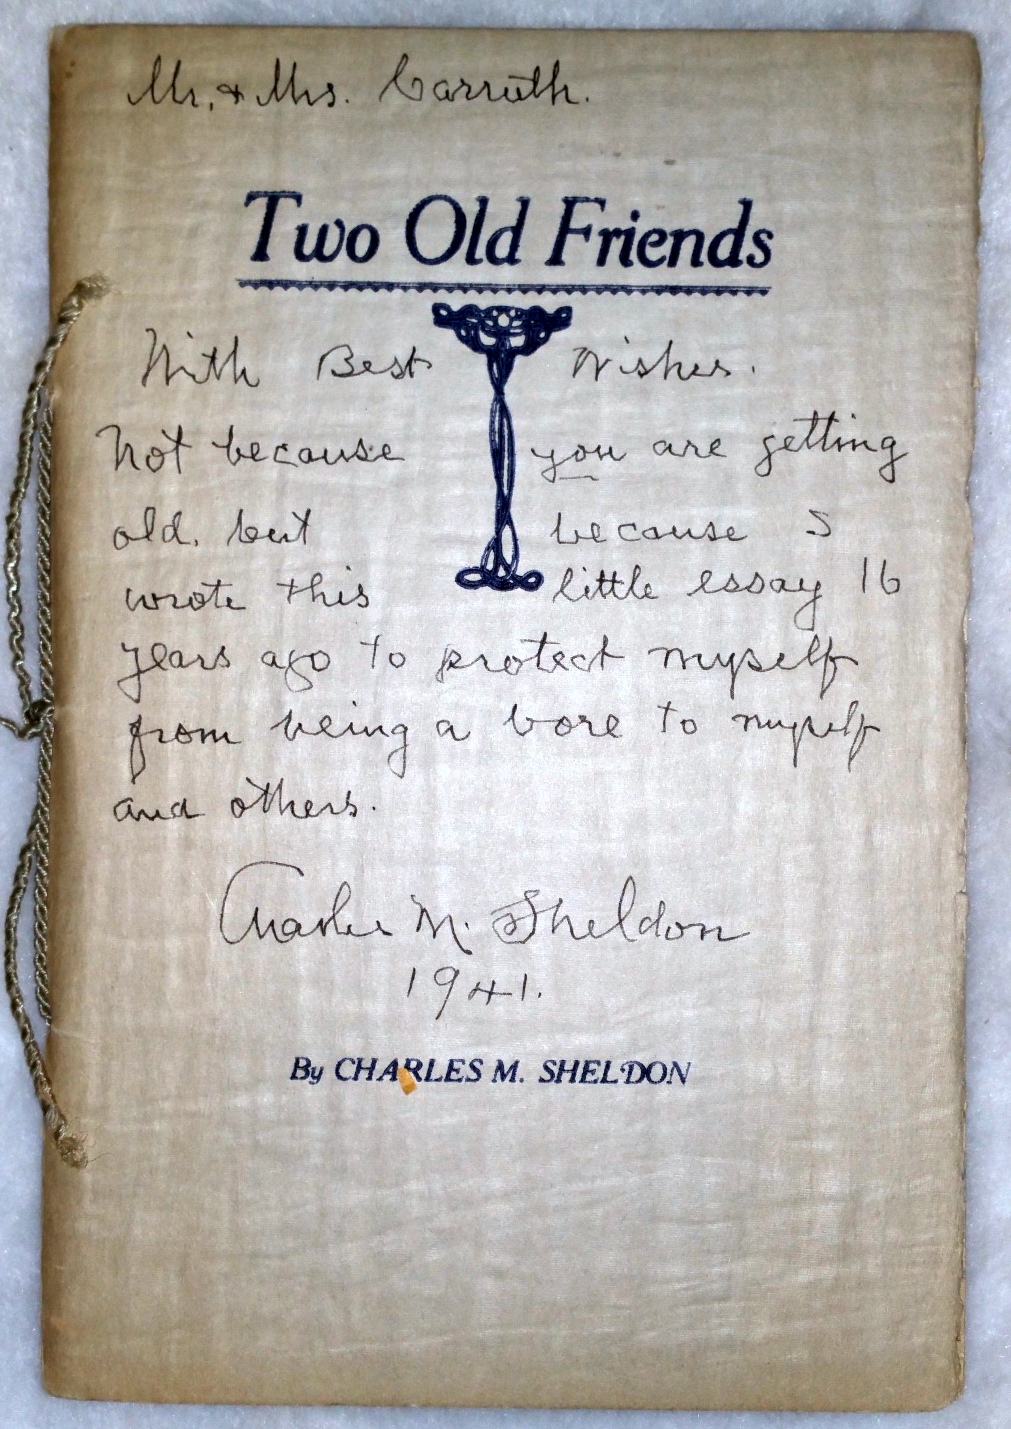 Mr. & Mrs. Carruth.
Two Old Friends
With Best Wishes.
Not because you are getting
old. but because I
wrote this little essay 16
years ago to protect myself
from being a bore to myself
and others.
Charles M. Sheldon
1941.
By CHARLES M. SHELDON